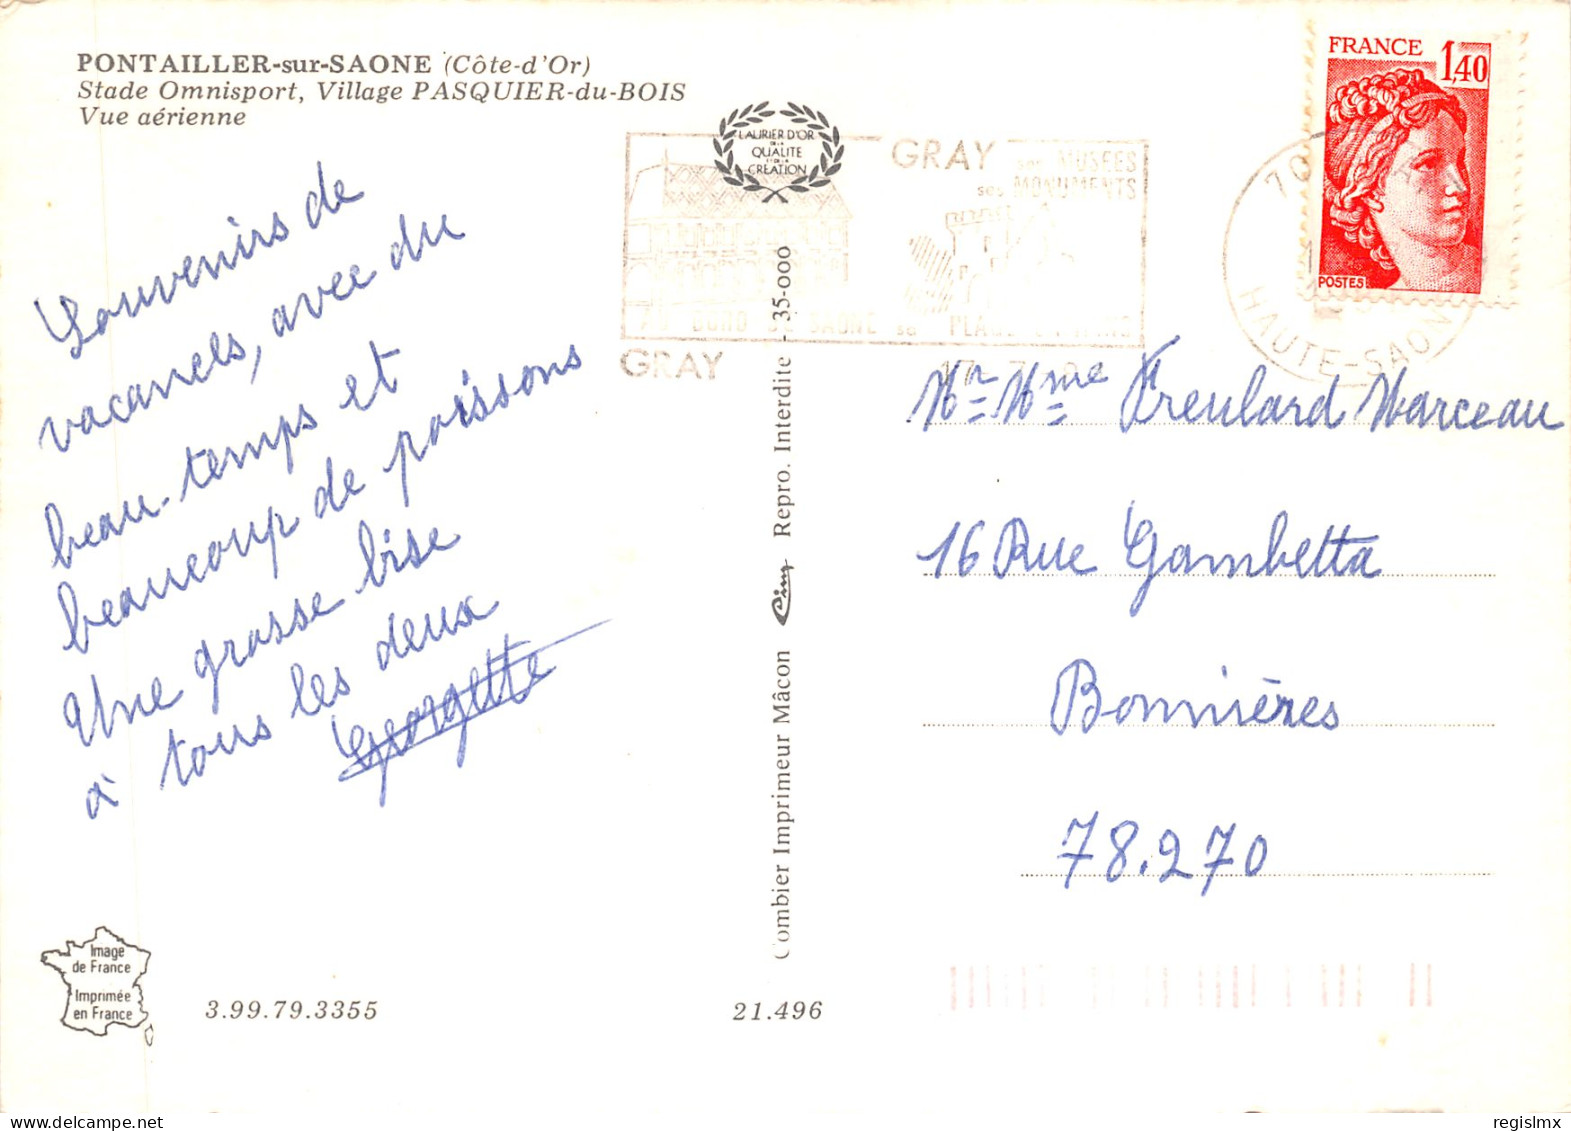 PONTAILLER-sur-SAONE (Côte-d'Or)
Stade Omnisport, Village PASQUIER-du-BOIS
Vue aérienne
Souvenirs de
vacances, avec du
beau-temps et
beaucoup de poissons
Une grosse bise
à tous les deux
Georgette
LAURIER D'OR
DE LA
QUALITE
ET DE LA
CRÉATION
GRAY ses MUSÉES
ses MONUMENTS
AU BORD DE SAONE sa PLAGE
GRAY
17 7
FRANCE
1,40
POSTES
70
HAUTE-SAONE
Mr Mme Freulard Marceau
16 Rue Gambetta
Bonnières
78.270
Combier Imprimeur Mâcon Cim Repro. Interdite - 35-000
Image
de France
Imprimée
en France
3.99.79.3355
21.496
regislmx